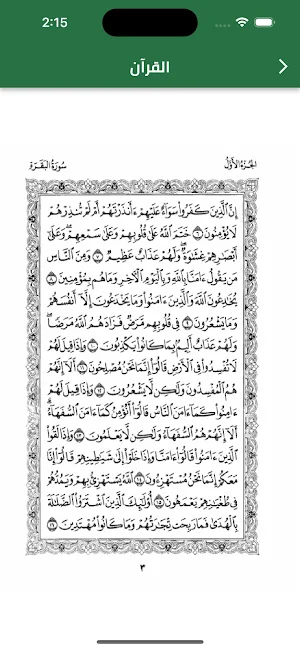 2:15
القرآن
الجزء الأول
سورة البقرة
إِنَّ ٱلَّذِينَ كَفَرُوا۟ سَوَآءٌ عَلَيْهِمْ ءَأَنذَرْتَهُمْ أَمْ لَمْ تُنذِرْهُمْ
لَا يُؤْمِنُونَ ٦ خَتَمَ ٱللَّهُ عَلَىٰ قُلُوبِهِمْ وَعَلَىٰ سَمْعِهِمْ ۖ وَعَلَىٰٓ
أَبْصَٰرِهِمْ غِشَٰوَةٌ ۖ وَلَهُمْ عَذَابٌ عَظِيمٌ ٧ وَمِنَ ٱلنَّاسِ
مَن يَقُولُ ءَامَنَّا بِٱللَّهِ وَبِٱلْيَوْمِ ٱلْءَاخِرِ وَمَا هُم بِمُؤْمِنِينَ ٨
يُخَٰدِعُونَ ٱللَّهَ وَٱلَّذِينَ ءَامَنُوا۟ وَمَا يَخْدَعُونَ إِلَّآ أَنفُسَهُمْ
وَمَا يَشْعُرُونَ ٩ فِى قُلُوبِهِم مَّرَضٌ فَزَادَهُمُ ٱللَّهُ مَرَضًا ۖ
وَلَهُمْ عَذَابٌ أَلِيمٌۢ بِمَا كَانُوا۟ يَكْذِبُونَ ١٠ وَإِذَا قِيلَ لَهُمْ
لَا تُفْسِدُوا۟ فِى ٱلْأَرْضِ قَالُوٓا۟ إِنَّمَا نَحْنُ مُصْلِحُونَ ١١ أَلَآ إِنَّهُمْ
هُمُ ٱلْمُفْسِدُونَ وَلَٰكِن لَّا يَشْعُرُونَ ١٢ وَإِذَا قِيلَ لَهُمْ
ءَامِنُوا۟ كَمَآ ءَامَنَ ٱلنَّاسُ قَالُوٓا۟ أَنُؤْمِنُ كَمَآ ءَامَنَ ٱلسُّفَهَآءُ ۗ
أَلَآ إِنَّهُمْ هُمُ ٱلسُّفَهَآءُ وَلَٰكِن لَّا يَعْلَمُونَ ١٣ وَإِذَا لَقُوا۟
ٱلَّذِينَ ءَامَنُوا۟ قَالُوٓا۟ ءَامَنَّا وَإِذَا خَلَوْا۟ إِلَىٰ شَيَٰطِينِهِمْ قَالُوٓا۟ إِنَّا
مَعَكُمْ إِنَّمَا نَحْنُ مُسْتَهْزِءُونَ ١٤ ٱللَّهُ يَسْتَهْزِئُ بِهِمْ وَيَمُدُّهُمْ
فِى طُغْيَٰنِهِمْ يَعْمَهُونَ ١٥ أُو۟لَٰٓئِكَ ٱلَّذِينَ ٱشْتَرَوُا۟ ٱلضَّلَٰلَةَ
بِٱلْهُدَىٰ فَمَا رَبِحَت تِّجَٰرَتُهُمْ وَمَا كَانُوا۟ مُهْتَدِينَ ١٦
٣